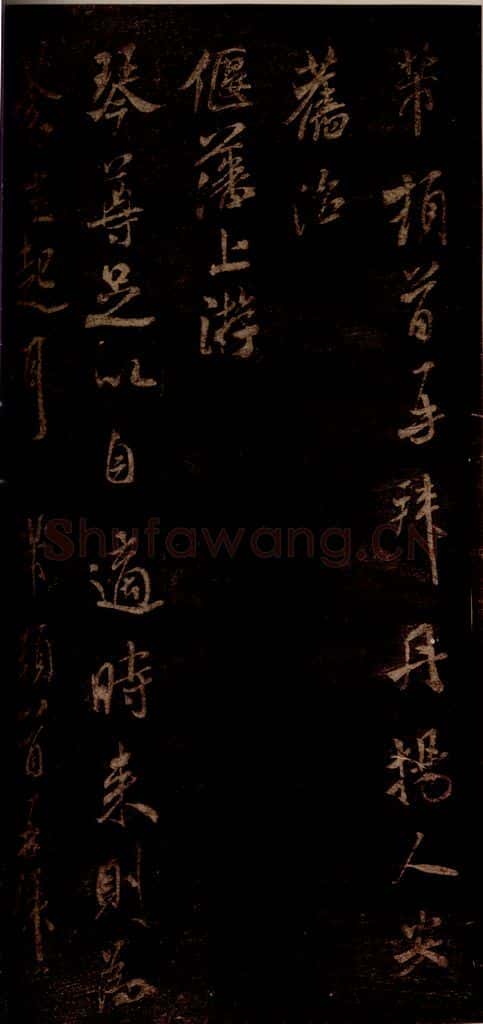 芾頓首再拜丹楊人安
舊治
偃藩上游
琴尊足以自適時來則為
蒼生起耳 芾頓首再拜
Shufawang.CN